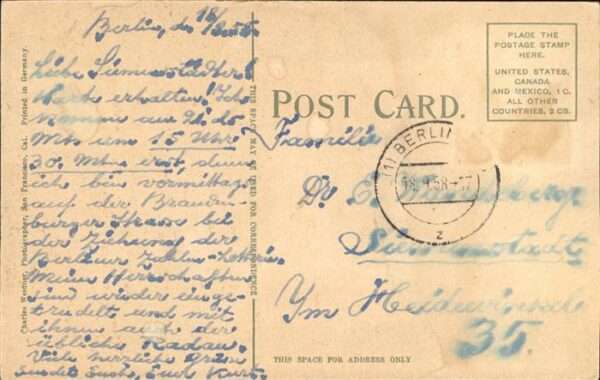 Berlin, d.
Karte erhalten! Ich
komme am
Mts um 15 Uhr
30. Mts erst, denn
ich bin vormittags
auf der Branden-
burger Strasse bei
der Ziehung der
Berliner Zahlen-Lotterie.
Meine Herrschaften
sind wieder einge-
trudelt und mit
ihnen auch der
übliche Radau.
Viele herzliche Grüße
sendet Euch, Euer Kurt.
Charles Weidner, Photographer, San Francisco, Cal. Printed in Germany.
THIS SPACE MAY BE USED FOR CORRESPONDENCE
POST CARD.
PLACE THE
POSTAGE STAMP
HERE.
UNITED STATES,
CANADA
AND MEXICO, 1 C.
ALL OTHER
COUNTRIES, 2 CS.
(1) BERLIN
58-17
z
Familie
Dr.
Siemensstadt
Im Heidewinkel
35.
THIS SPACE FOR ADDRESS ONLY